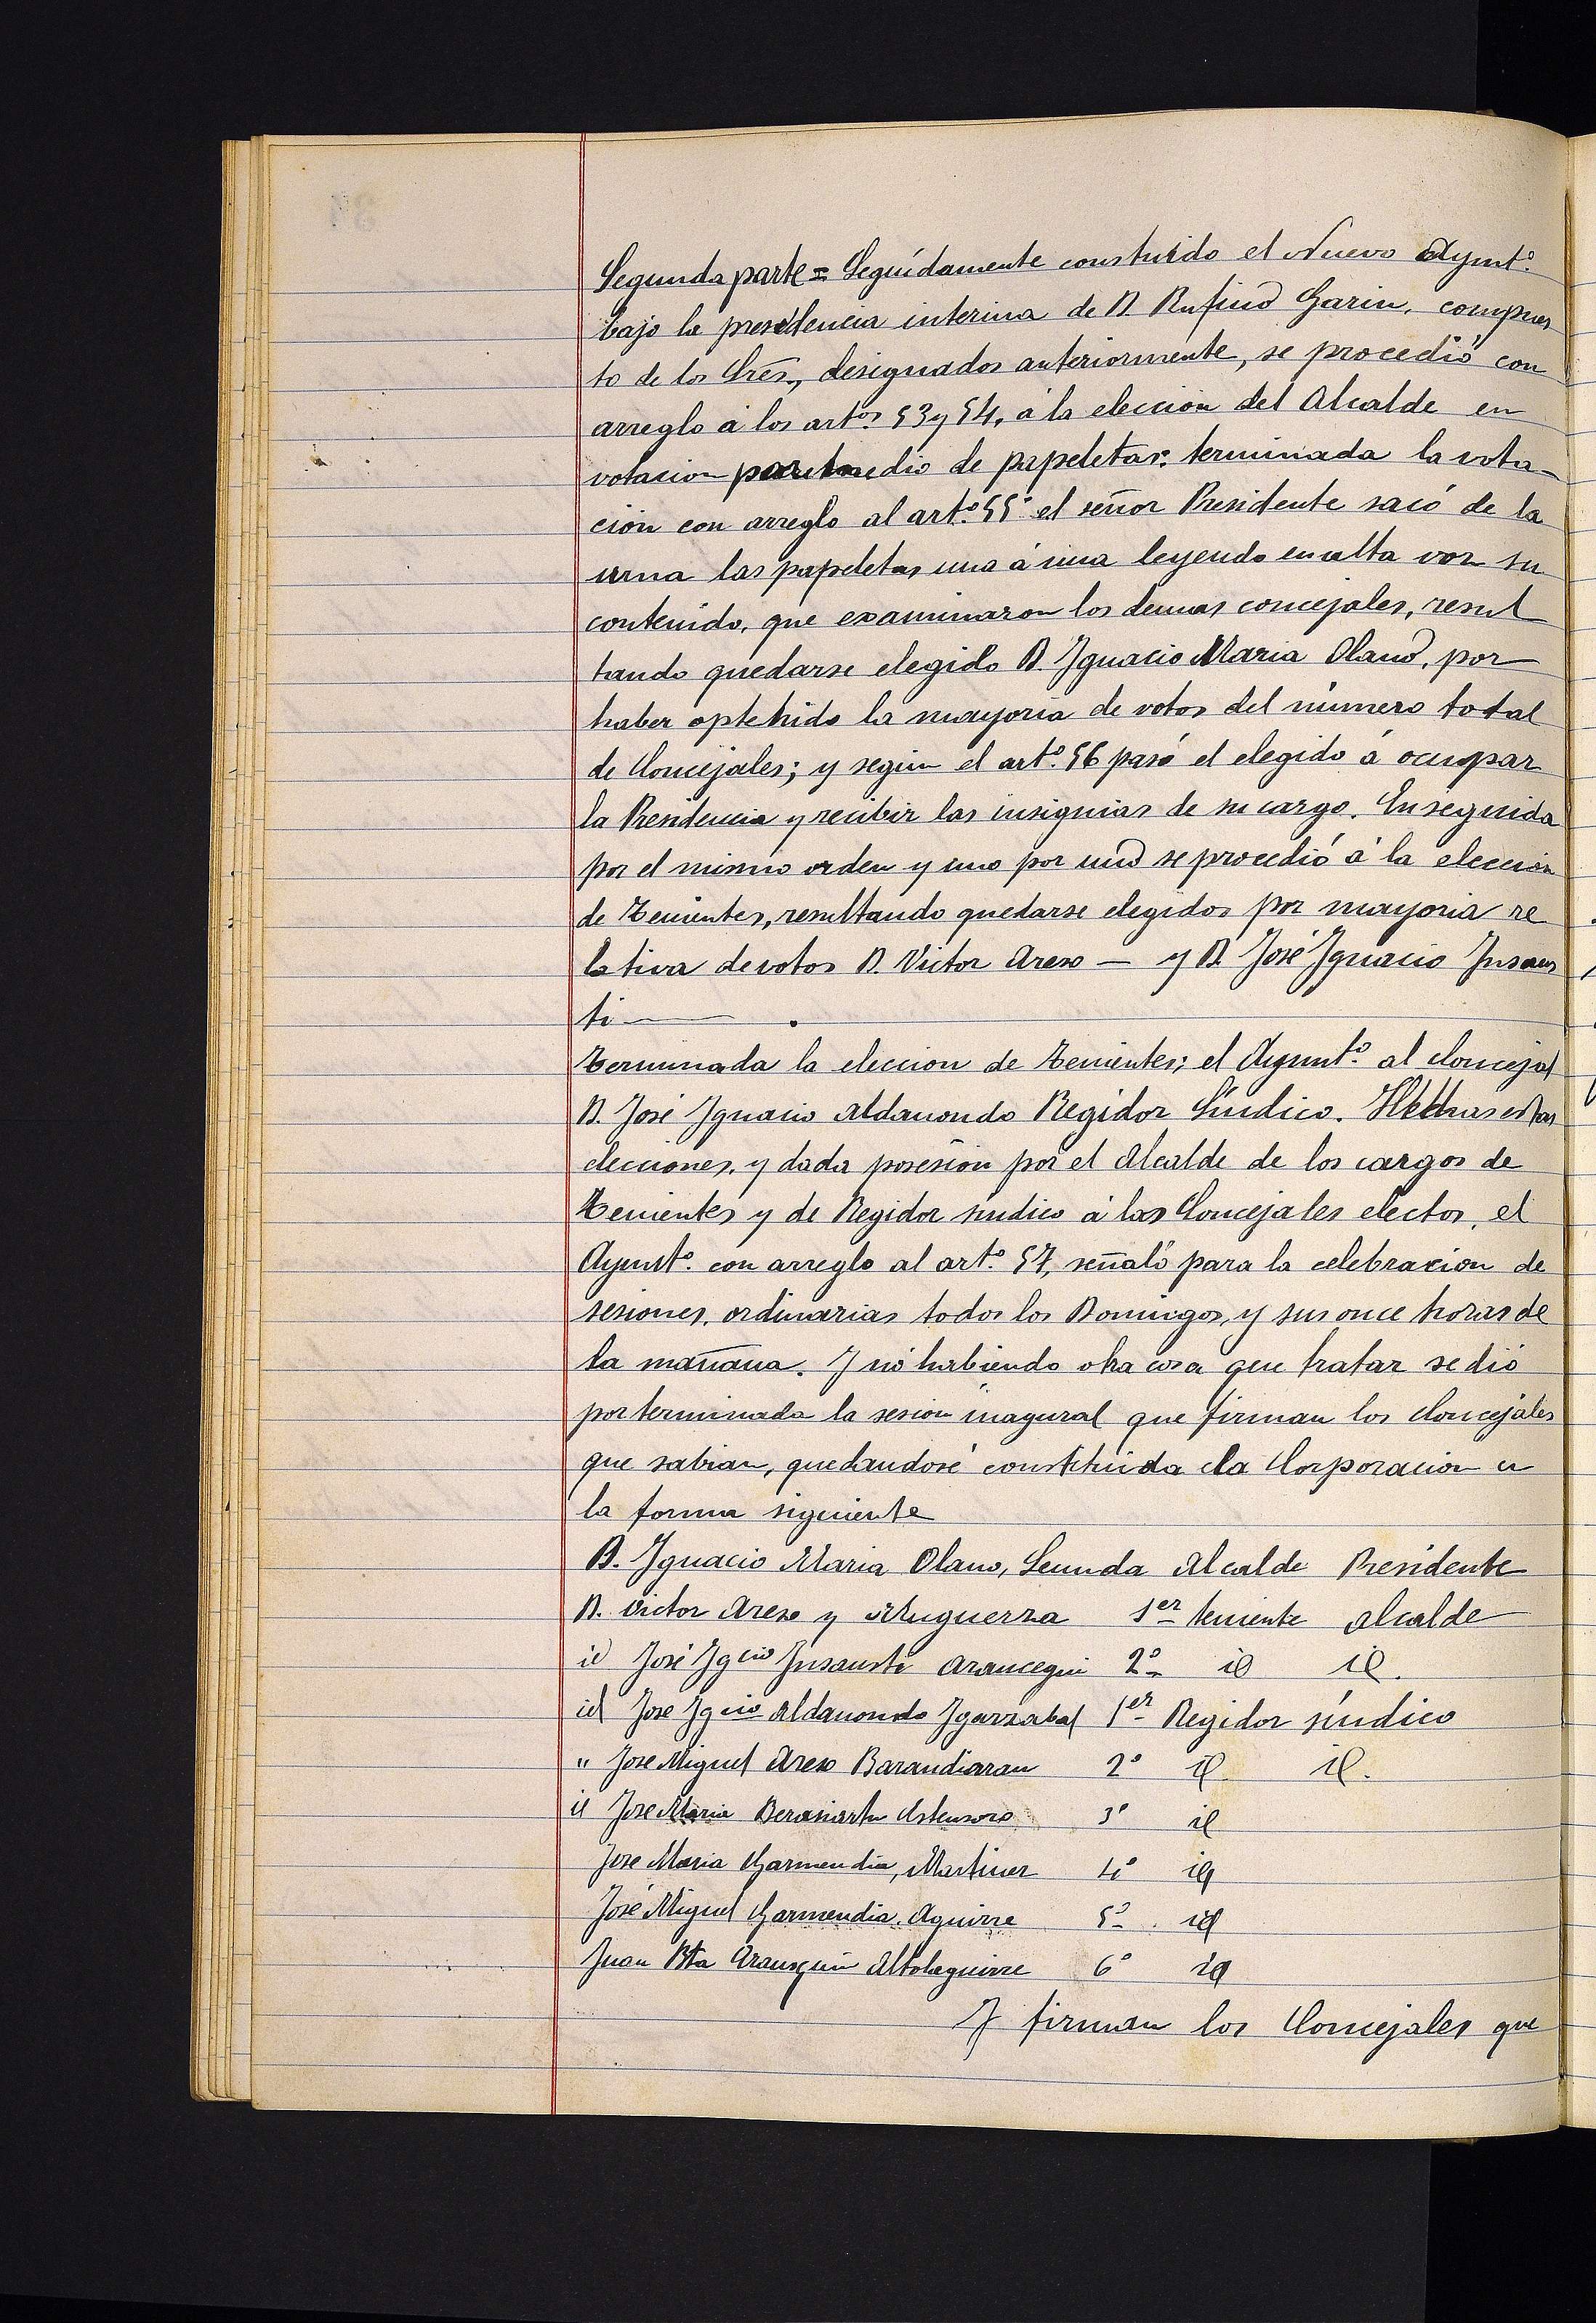 Segunda parte = Seguídamente constuido el Nuevo Aymt.º
bajo la presidencia interina de D. Rufino Garin, compues
to de los Sres., designados anteriormente, se procedió con
arreglo á los artos. 53 y 54, á la eleccion del Alcalde en
votacion por medio de papeletas: terminada la vota-
ción con arreglo al art.º 55º el señor Presidente sacó de la
urna las papeletas una á una leyendo en alta voz su
contenido, que examinaron los demas concejales, resul
tando quedarse elegido D. Ignacio Maria Olano, por
haber optenido la mayoria de votos del número total
de Concejales; y según el art.º 56 pasó el elegido á ocupar
la Presidencia y recibir las insignias de su cargo. Enseguida
por el mismo orden y uno por uno se procedió á la eleccion
de Tenientes, resultando quedarse elegidos por mayoria re
lativa de votos D. Victor Areso — y D. José Ignacio Insaus
ti —
Terminada la eleccion de Tenientes; el Ayunt.º al Concejal
D. José Ignacio Aldanondo Regidor Síndico. Hechas estas
elecciones, y dada posesión por el Alcalde de los cargos de
Tenientes y de Regidor síndico á los Concejales electos, el
Ayunt.º con arreglo al art.º 57, señaló para la celebracion de
sesiones, ordinarias todos los Domingos, y sus once horas de
la mañana. Y nó habiendo otra cosa que tratar se dió
por terminada la sesion inagural que firman los Concejales
que sabian, quedandosé constituida la Corporacion en
la forma siguiente
D. Ignacio Maria Olano, Senuda Alcalde Presidente
D. Victor Areso y Muguerza 1er teniente alcalde
id José Igcio Insausti Arancegui 2º id id.
id Jose Igcio Aldanondo Igarzabal 1er Regidor síndico
" Jose Miguel Areso Barandiaran 2º id id.
id Jose Maria Berasiartu Ostensoro 3º id
Jose Maria Garmendia, Martinez 4º id
José Miguel Garmendia Aguirre 5º id
Juan Bta Altolaguirre 6º id
Y firman los Concejales que